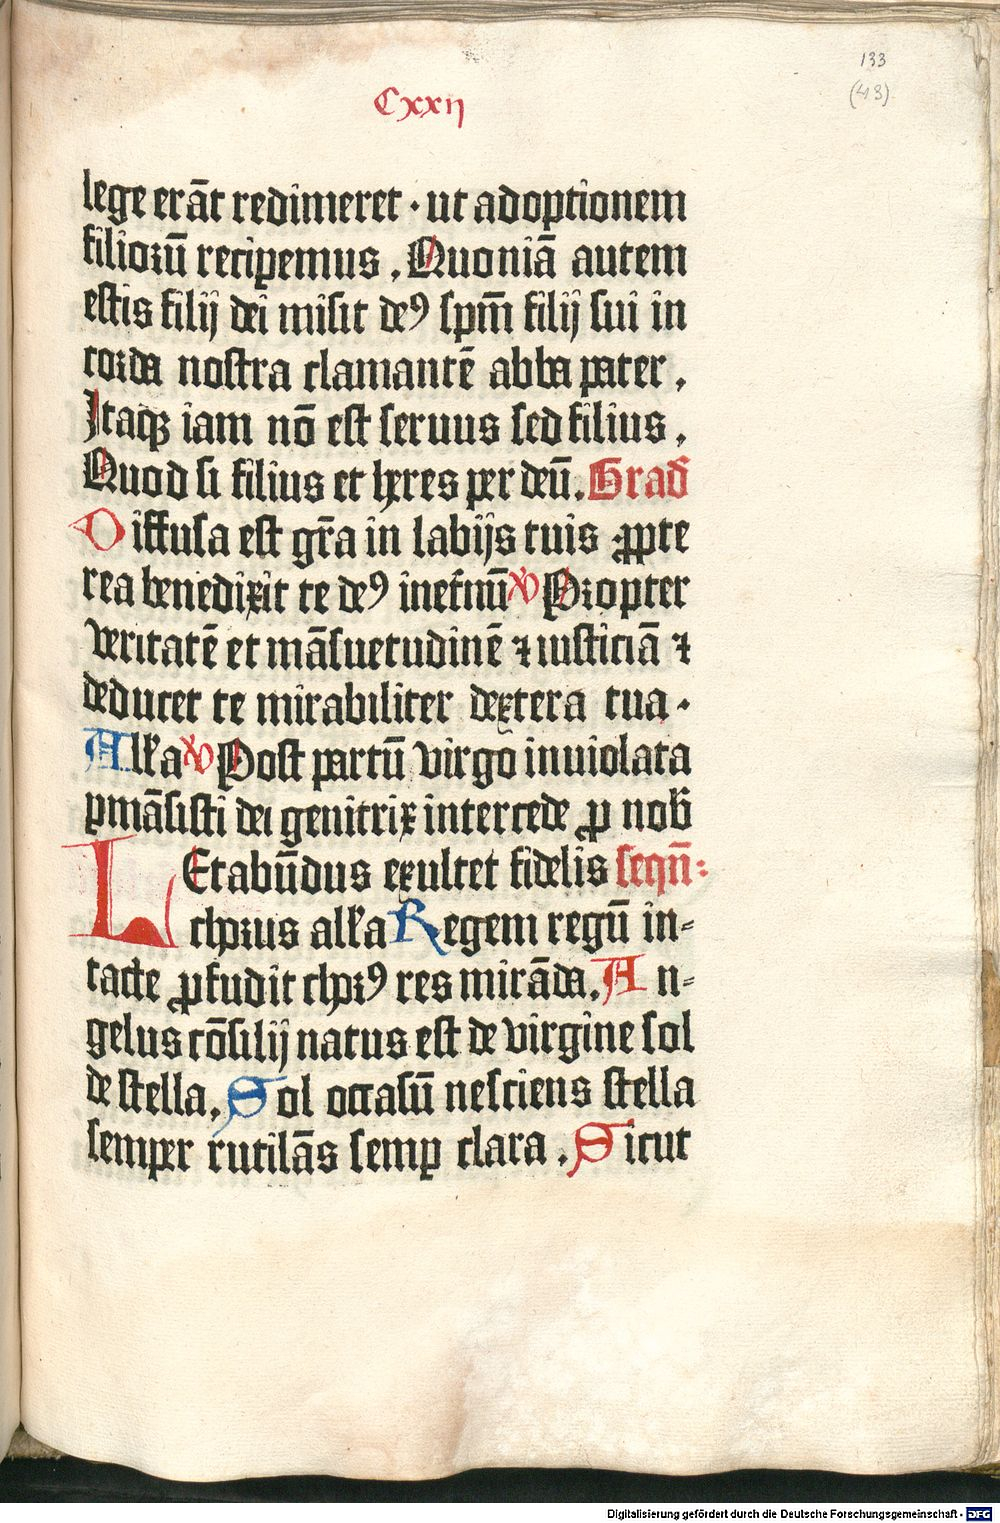 133
(43)
Cxxij
lege erāt redimeret · ut adoptionem
filiorū recipemus . Quoniā autem
estis filij dei misit deꝰ spm̄ filij sui in
corda nostra clamantē abba pater .
Itaqꝫ iam nō est seruus sed filius .
Quod si filius et heres per deū . Grad̄
Diffusa est gr̄a in labijs tuis ꝓpte
rea benedixit te deꝰ inet̄nū ℣ Propter
veritatē et māsuetudinē ⁊ iusticiā ⁊
deducet te mirabiliter dextera tua ·
Allꝛa ℣ Post partū virgo inuiolata
ꝑmāsisti dei genitrix intercede ꝓ nob̄
LEtabūdus exultet fidelis seqn̄:
chorus allꝛa Regem regū in=
tacte ꝓfudit chorꝰ res mirāda . An=
gelus cōsilij natus est de virgine sol
de stella . Sol occasū nesciens stella
semper rutilās semꝑ clara . Sicut
Digitalisierung gefördert durch die Deutsche Forschungsgemeinschaft - DFG